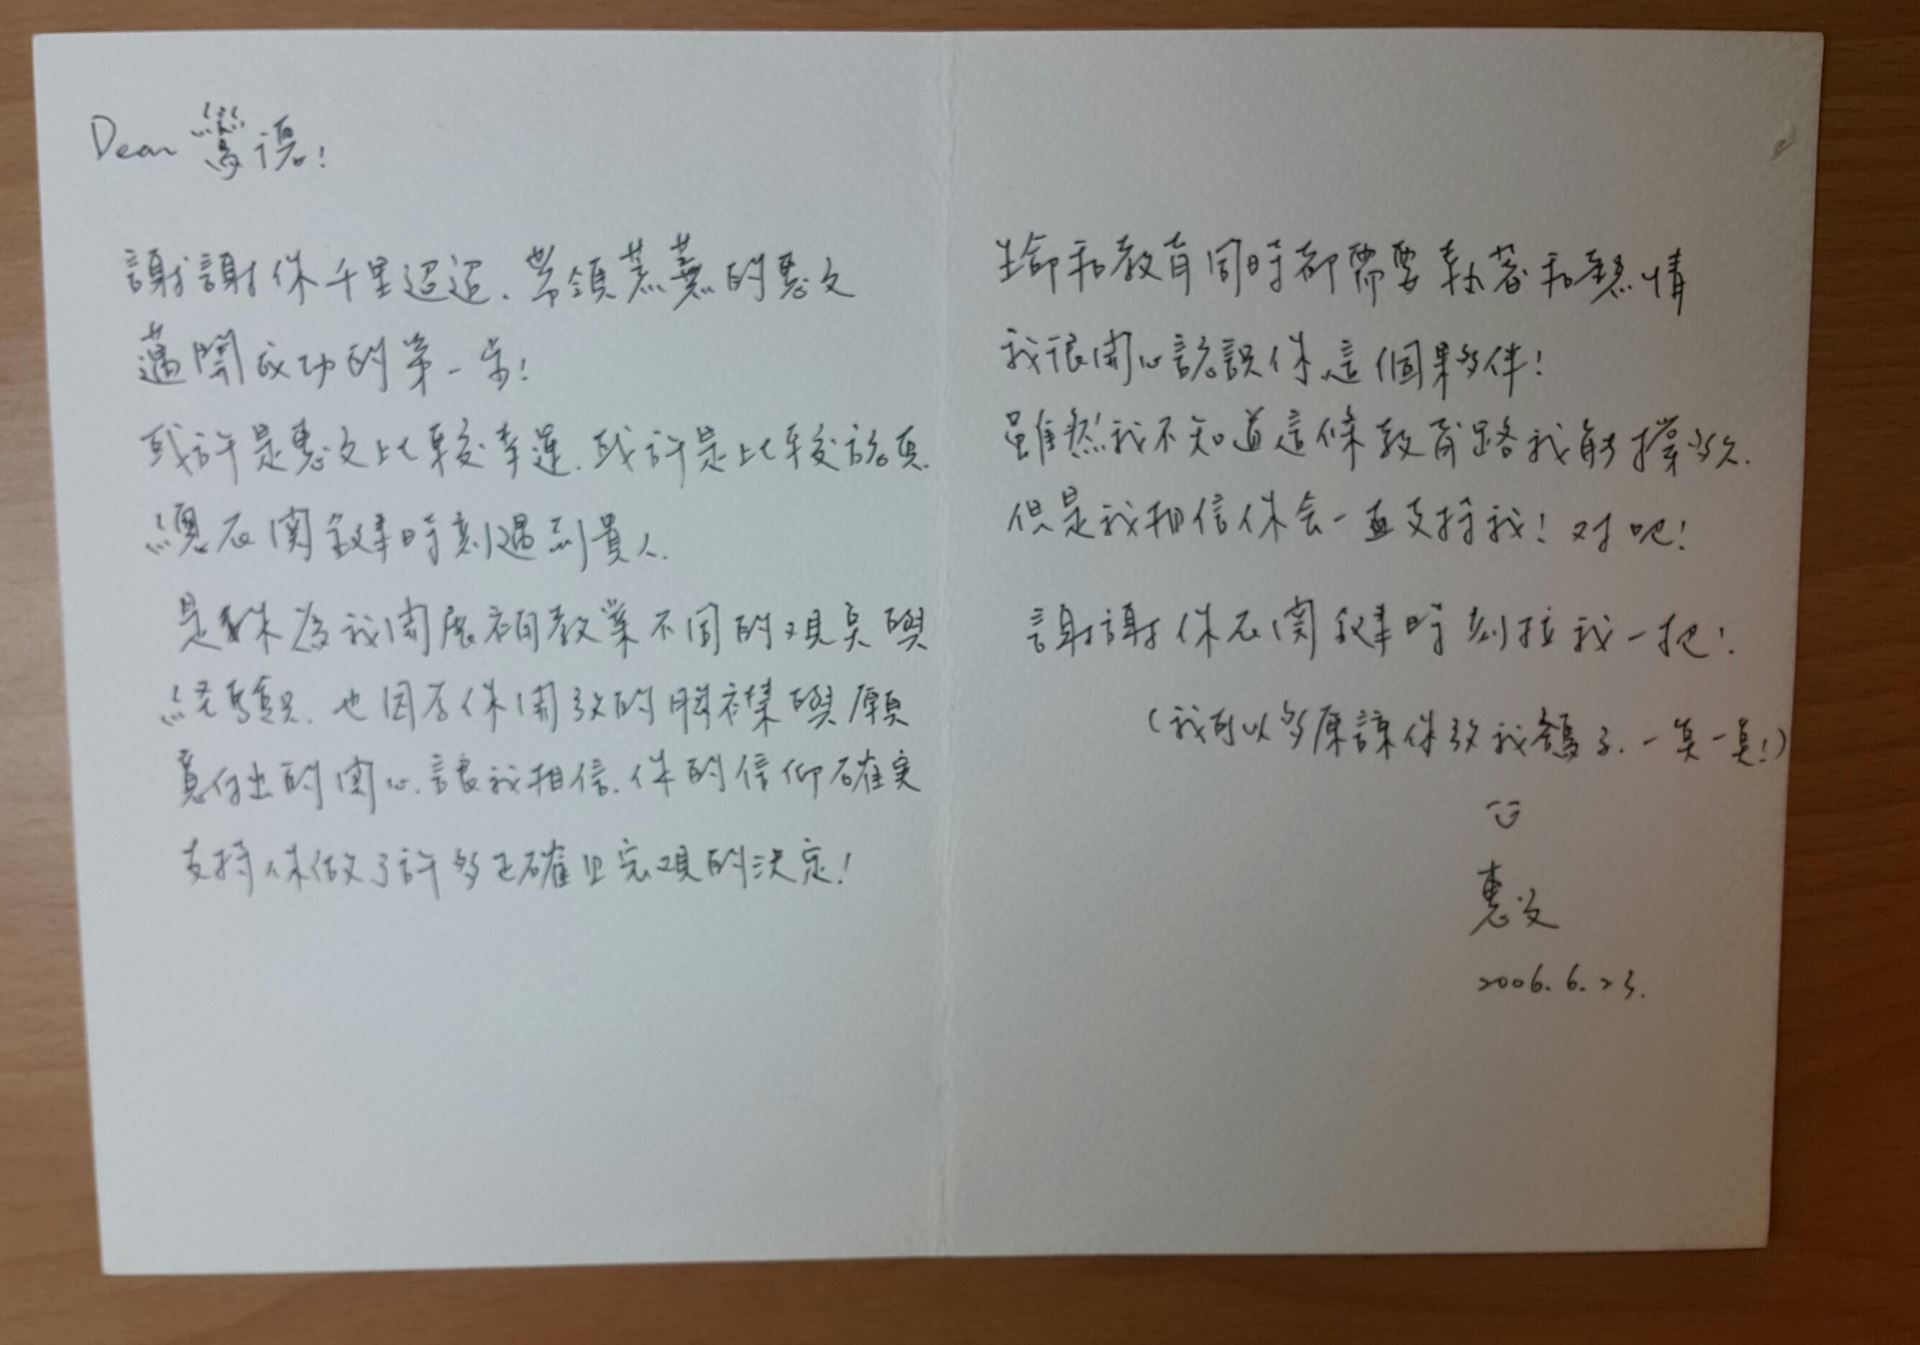 Dear 鶯德!
謝謝你千里迢迢、帶領蕪蕪的惠文
邁開成功的第一步!
或許是惠文比較幸運、或許是比較認真、
總在關鍵時刻遇到貴人.
是你為我開展有關教業不同的观臭與
經驗、也因為你開放的胸襟與願
意付出的関心、讓我相信、你的信仰確实
支持你做了許多正確且宏观的決定!
生命和教育同時都需要執著和熱情
我很開心認識你這個夥伴!
雖然我不知道這條教育路我能撐多久.
但是我相信你会一直支持我! 对吧!
謝謝你在関鍵時刻拉我一把!
(我可以多原諒你放我鴿子、一臭一臭!)
惠文
2006.6.23.